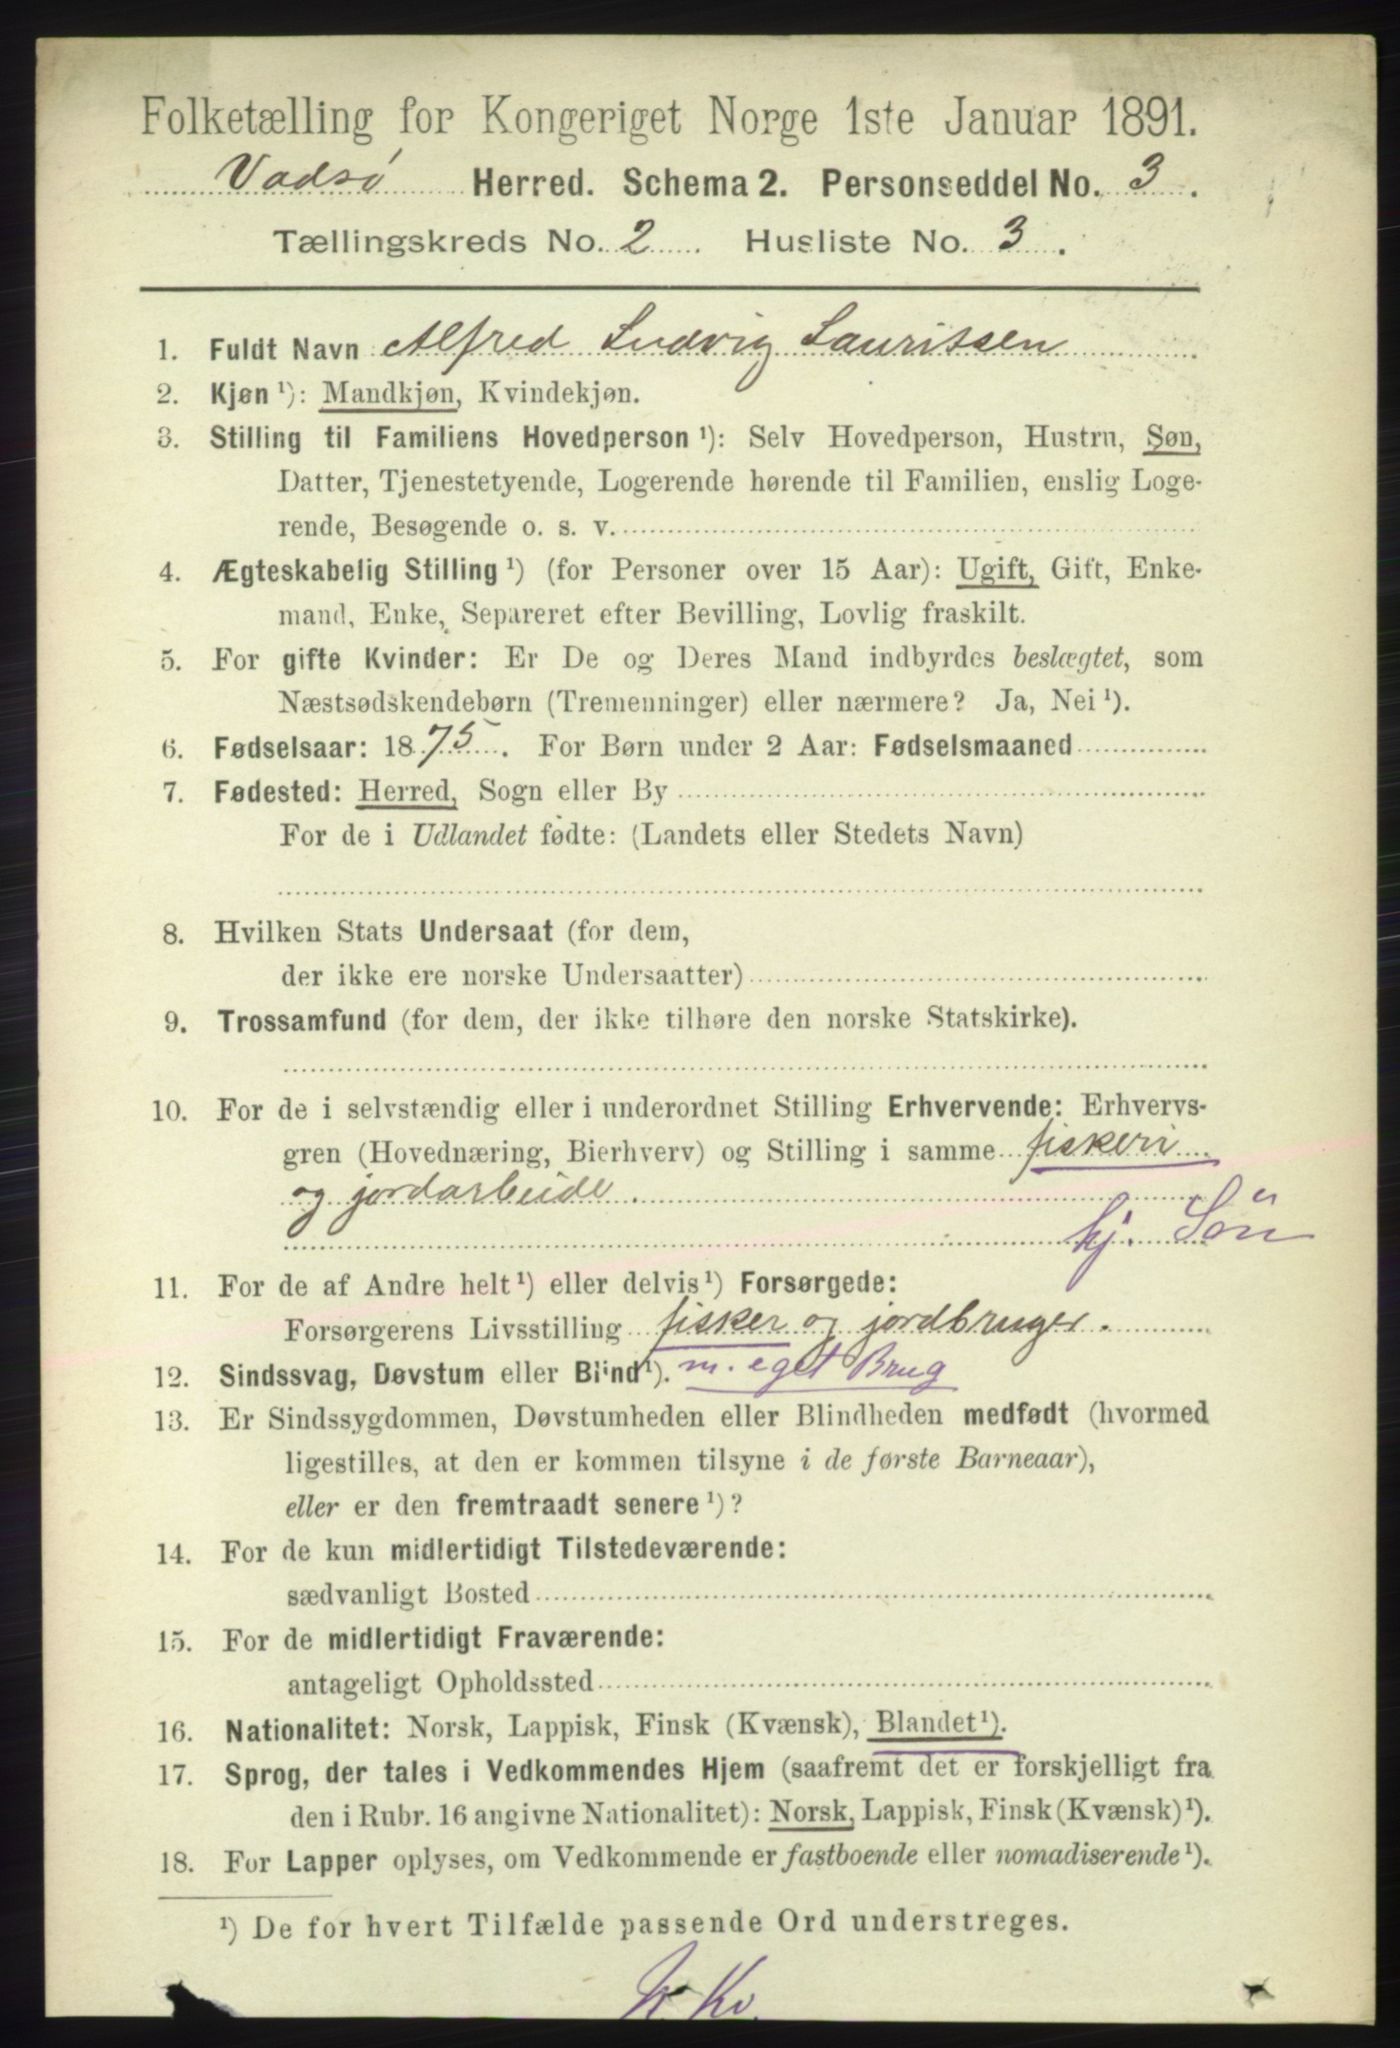 Folketælling for Kongeriget Norge 1ste Januar 1891.
Vadsø Herred. Schema 2. Personseddel No. 3.
Tællingskreds No. 2 Husliste No. 3.
1. Fuldt Navn Alfred Ludvig Lauritsen
2. Kjøn ¹): Mandkjøn, Kvindekjøn.
3. Stilling til Familiens Hovedperson ¹): Selv Hovedperson, Hustru, Søn,
Datter, Tjenestetyende, Logerende hørende til Familien, enslig Loge-
rende, Besøgende o. s. v.
4. Ægteskabelig Stilling ¹) (for Personer over 15 Aar): Ugift, Gift, Enke-
mand, Enke, Separeret efter Bevilling, Lovlig fraskilt.
5. For gifte Kvinder: Er De og Deres Mand indbyrdes beslægtet, som
Næstsødskendebørn (Tremenninger) eller nærmere? Ja, Nei ¹).
6. Fødselsaar: 1875. For Børn under 2 Aar: Fødselsmaaned
7. Fødested: Herred, Sogn eller By
For de i Udlandet fødte: (Landets eller Stedets Navn)
8. Hvilken Stats Undersaat (for dem,
der ikke ere norske Undersaatter)
9. Trossamfund (for dem, der ikke tilhøre den norske Statskirke).
10. For de i selvstændig eller i underordnet Stilling Erhvervende: Erhvervs-
gren (Hovednæring, Bierhverv) og Stilling i samme fiskeri
og jordarbeide.
hj. Søn
11. For de af Andre helt ¹) eller delvis ¹) Forsørgede:
Forsørgerens Livsstilling fisker og jordbruger.
12. Sindssvag, Døvstum eller Blind ¹). m. eget Brug
13. Er Sindssygdommen, Døvstumheden eller Blindheden medfødt (hvormed
ligestilles, at den er kommen tilsyne i de første Barneaar),
eller er den fremtraadt senere ¹)?
14. For de kun midlertidigt Tilstedeværende:
sædvanligt Bosted
15. For de midlertidigt Fraværende:
antageligt Opholdssted
16. Nationalitet: Norsk, Lappisk, Finsk (Kvænsk), Blandet ¹).
17. Sprog, der tales i Vedkommendes Hjem (saafremt det er forskjelligt fra
den i Rubr. 16 angivne Nationalitet): Norsk, Lappisk, Finsk (Kvænsk) ¹).
18. For Lapper oplyses, om Vedkommende er fastboende eller nomadiserende ¹).
¹) De for hvert Tilfælde passende Ord understreges.